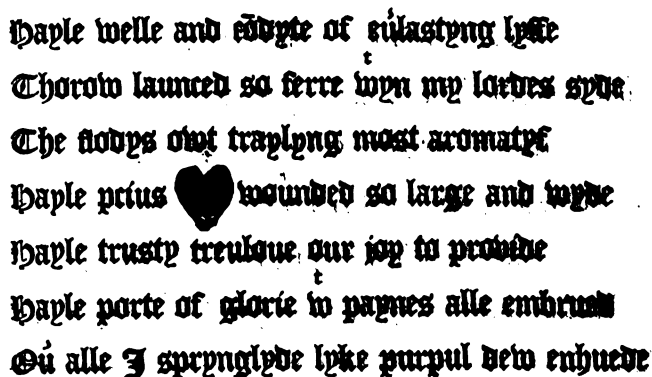 Hayle welle and cōdyte of eu̇lastyng lyffe
Thorow launced so ferre wᵗyn my lordes syde
The flodys owt traylyng most aromatyf
Hayle pcius wounded so large and wyde
Hayle trusty treuloue our joy to provide
Hayle porte of glorie wᵗ paynes alle embrued
Ou̇ alle I sprynglyde lyke purpul dew enhuede